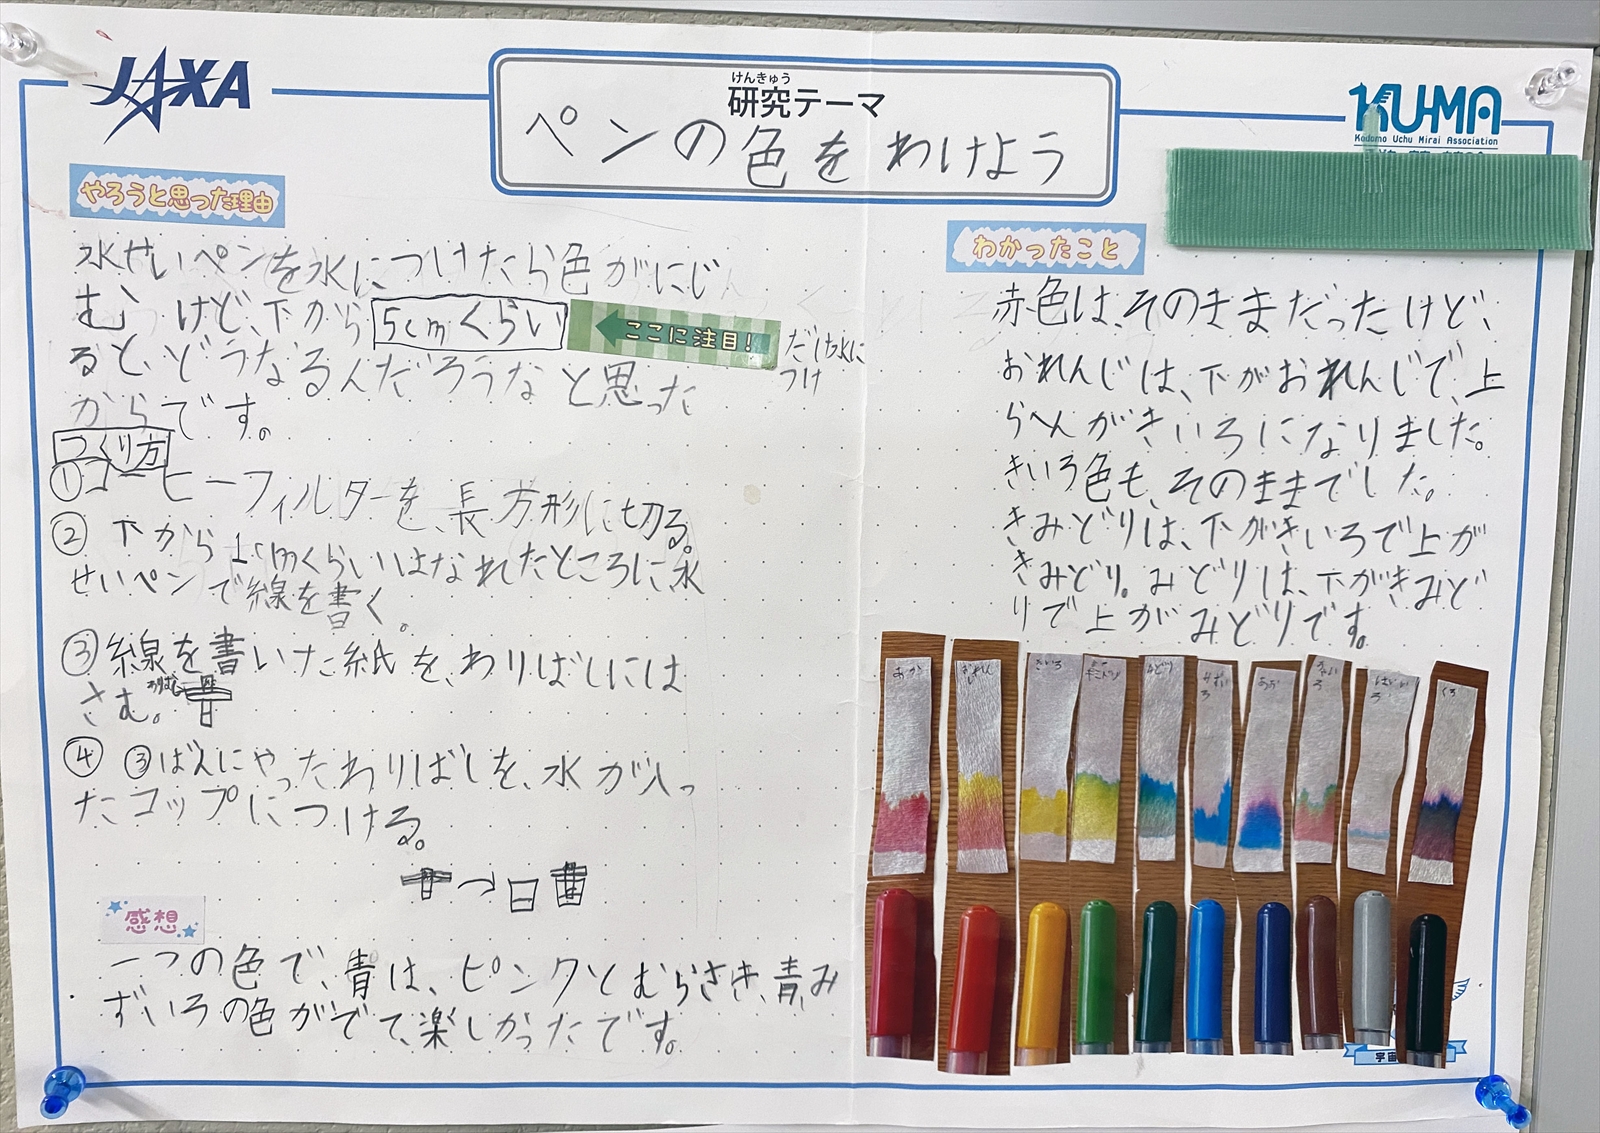 JAXA
けんきゅう
研究テーマ
ペンの色をわけよう
KU-MA
Kodomo Uchu Mirai Association
やろうと思った理由
水せいペンを水につけたら色がにじ
むけど、下から5cmくらい
ここに注目!
だけ水に
つけ
ると、どうなるんだろうなと思った
からです。
つくり方
①コーヒーフィルターを、長方形に切る。
② 下から1cmくらいはなれたところに、水
せいペンで線を書く。
③線を書いた紙を、わりばしには
さむ。
わりばし
④ ③ばんにやったわりばしを、水が入っ
たコップにつける。
感想
一つの色で、青は、ピンクとむらさき、青、み
ずいろの色がでて、楽しかったです。
わかったこと
赤色は、そのままだったけど、
おれんじは、下がおれんじで、上
らへんがきいろになりました。
きいろ色も、そのままでした。
きみどりは、下がきいろで上が
きみどり。みどりは、下がきみど
りで上がみどりです。
あか
おれんじ
きいろ
きみどり
みどり
みずいろ
あお
ちゃいろ
はいいろ
くろ
宇宙